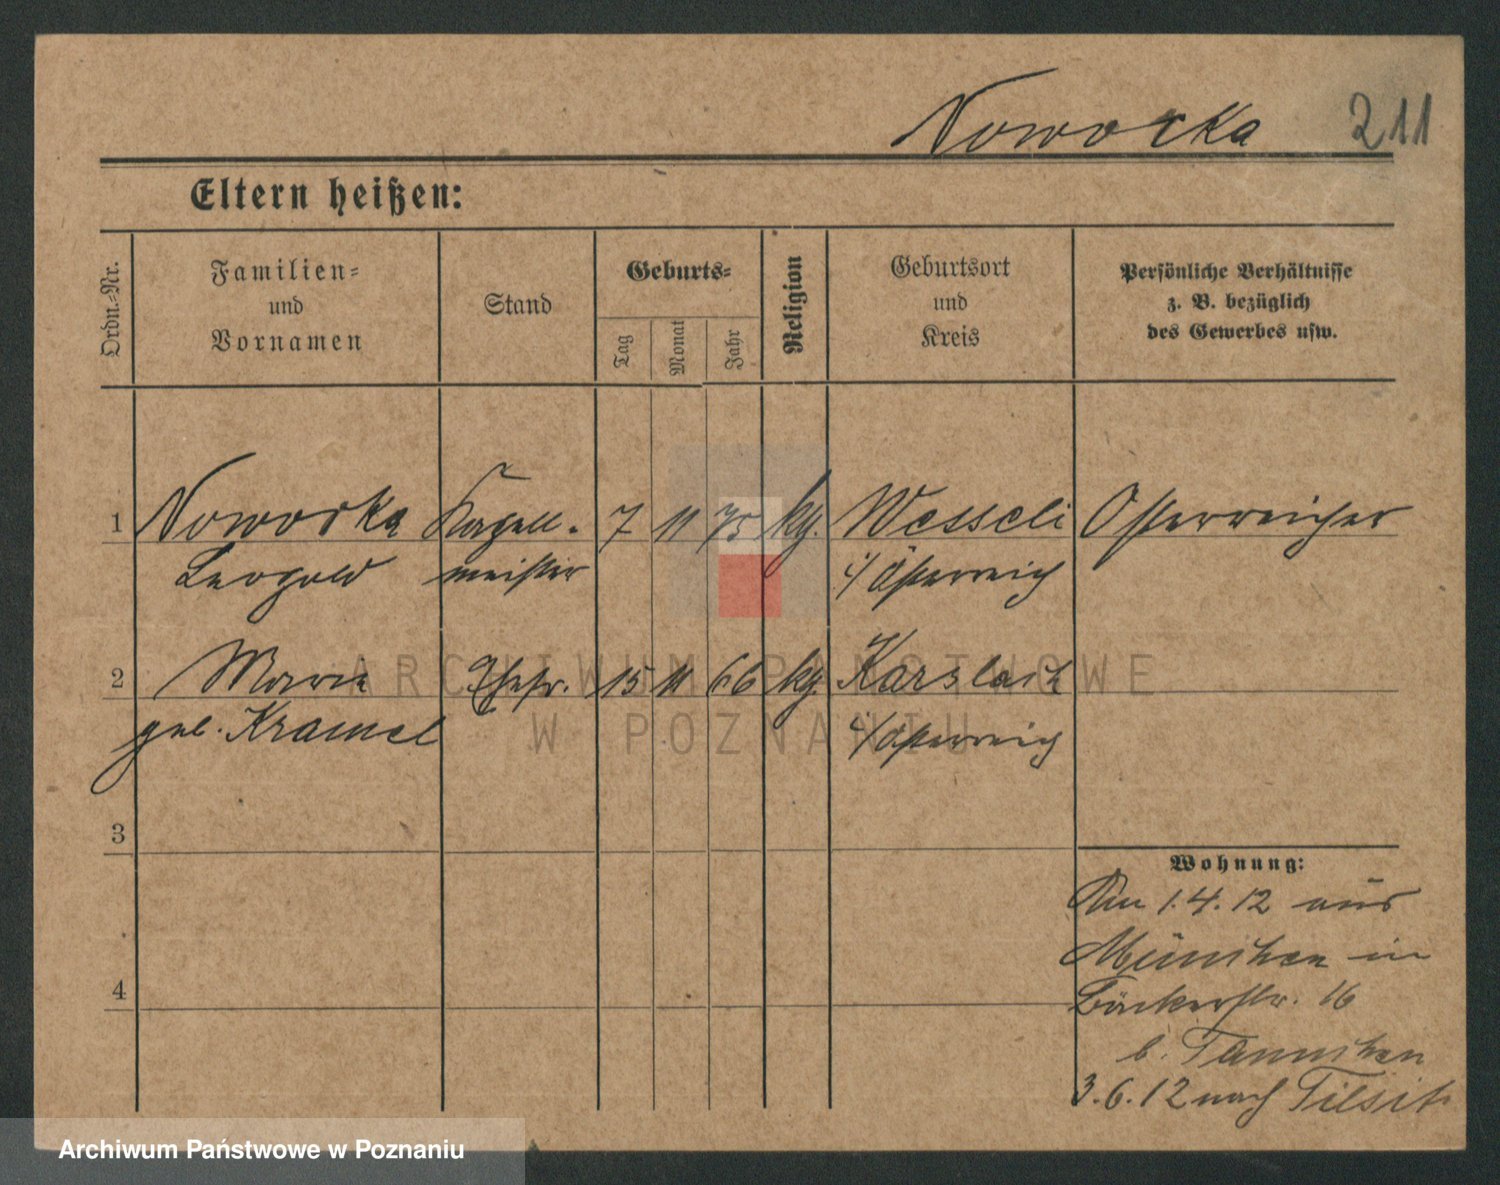 Noworka 211
Eltern heißen:
Ordn.=Nr.
Familien=
und
Vornamen
Stand
Geburts=
Tag
Monat
Jahr
Religion
Geburtsort
und
Kreis
Persönliche Verhältnisse
z. B. bezüglich
des Gewerbes usw.
1 Noworka Kapell- 7 11 75 kth. Wesseli Österreicher
Leopold meister i/Österreich
2 Marie Ehefr. 15 11 66 kth.
geb. Kramel i/Österreich
3
4
Wohnung:
Am 1.4.12 aus
München in
Bäckerstr. 16
b.
3.6.12 nach Tilsit
ARCHIWUM PAŃSTWOWE
W POZNANIU
Archiwum Państwowe w Poznaniu